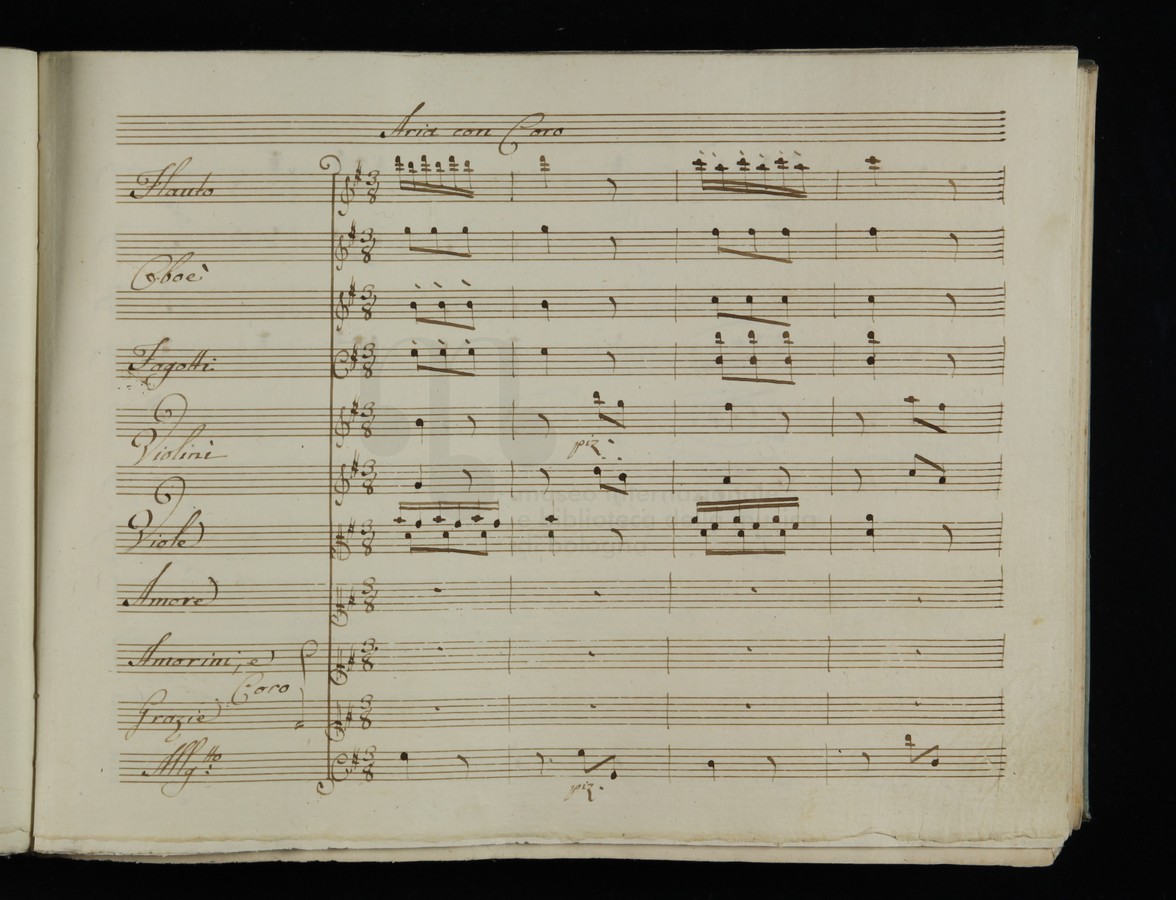 Aria con Coro
Flauto
Oboè
Fagotti
Violini
piz:
Viole
Amore
Amorini, e
Coro
Grazie
All.gtto
piz.
museo internazionale
e biblioteca della musica
di bologna